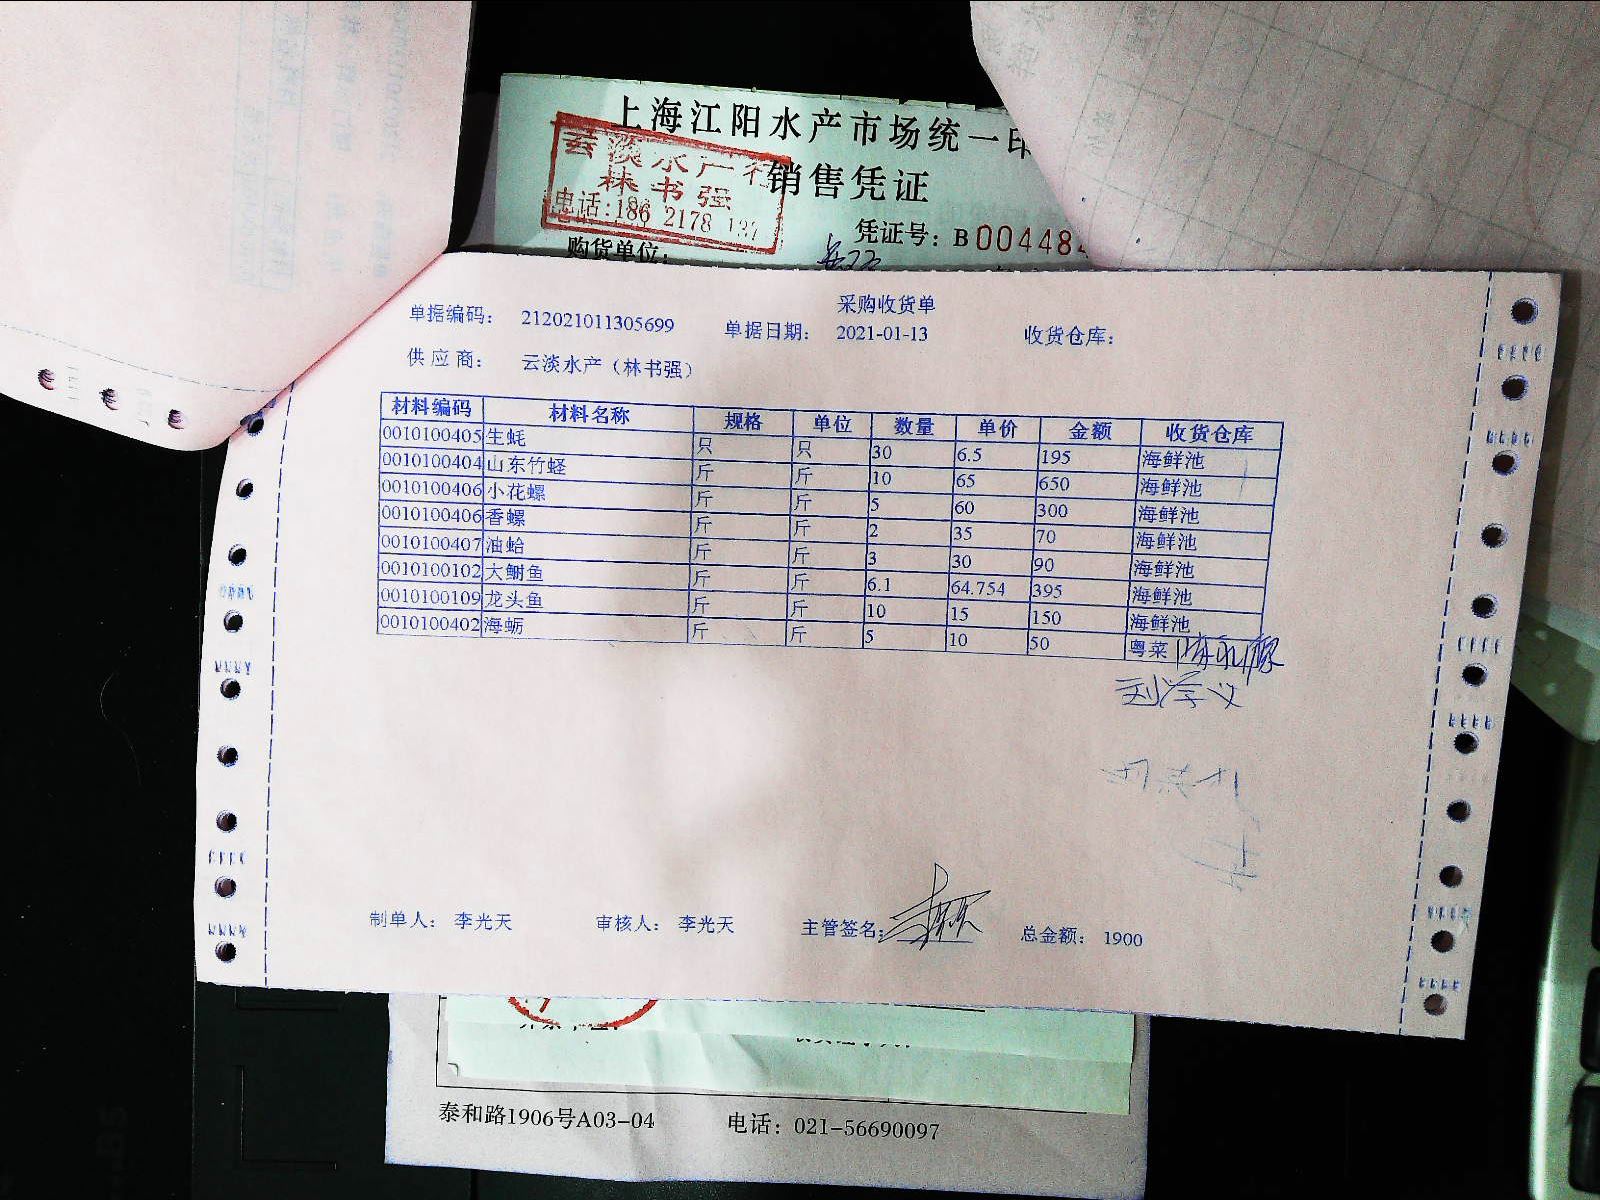 上海江阳水产市场统一印
销售凭证
云淡水产行
林书强
电话:186 2178 137
凭证号: B004484
购货单位:
采购收货单
单据编码: 212021011305699 单据日期: 2021-01-13 收货仓库:
供应商: 云淡水产（林书强）
材料编码 材料名称 规格 单位 数量 单价 金额 收货仓库
0010100405 生蚝 只 只 30 6.5 195 海鲜池
0010100404 山东竹蛏 斤 斤 10 65 650 海鲜池
0010100406 小花螺 斤 斤 5 60 300 海鲜池
0010100406 香螺 斤 斤 2 35 70 海鲜池
0010100407 油蛤 斤 斤 3 30 90 海鲜池
0010100102 大鲥鱼 斤 斤 6.1 64.754 395 海鲜池
0010100109 龙头鱼 斤 斤 10 15 150 海鲜池
0010100402 海蛎 斤 斤 5 10 50 粤菜
制单人: 李光天 审核人: 李光天 主管签名: 总金额: 1900
泰和路1906号A03-04 电话: 021-56690097